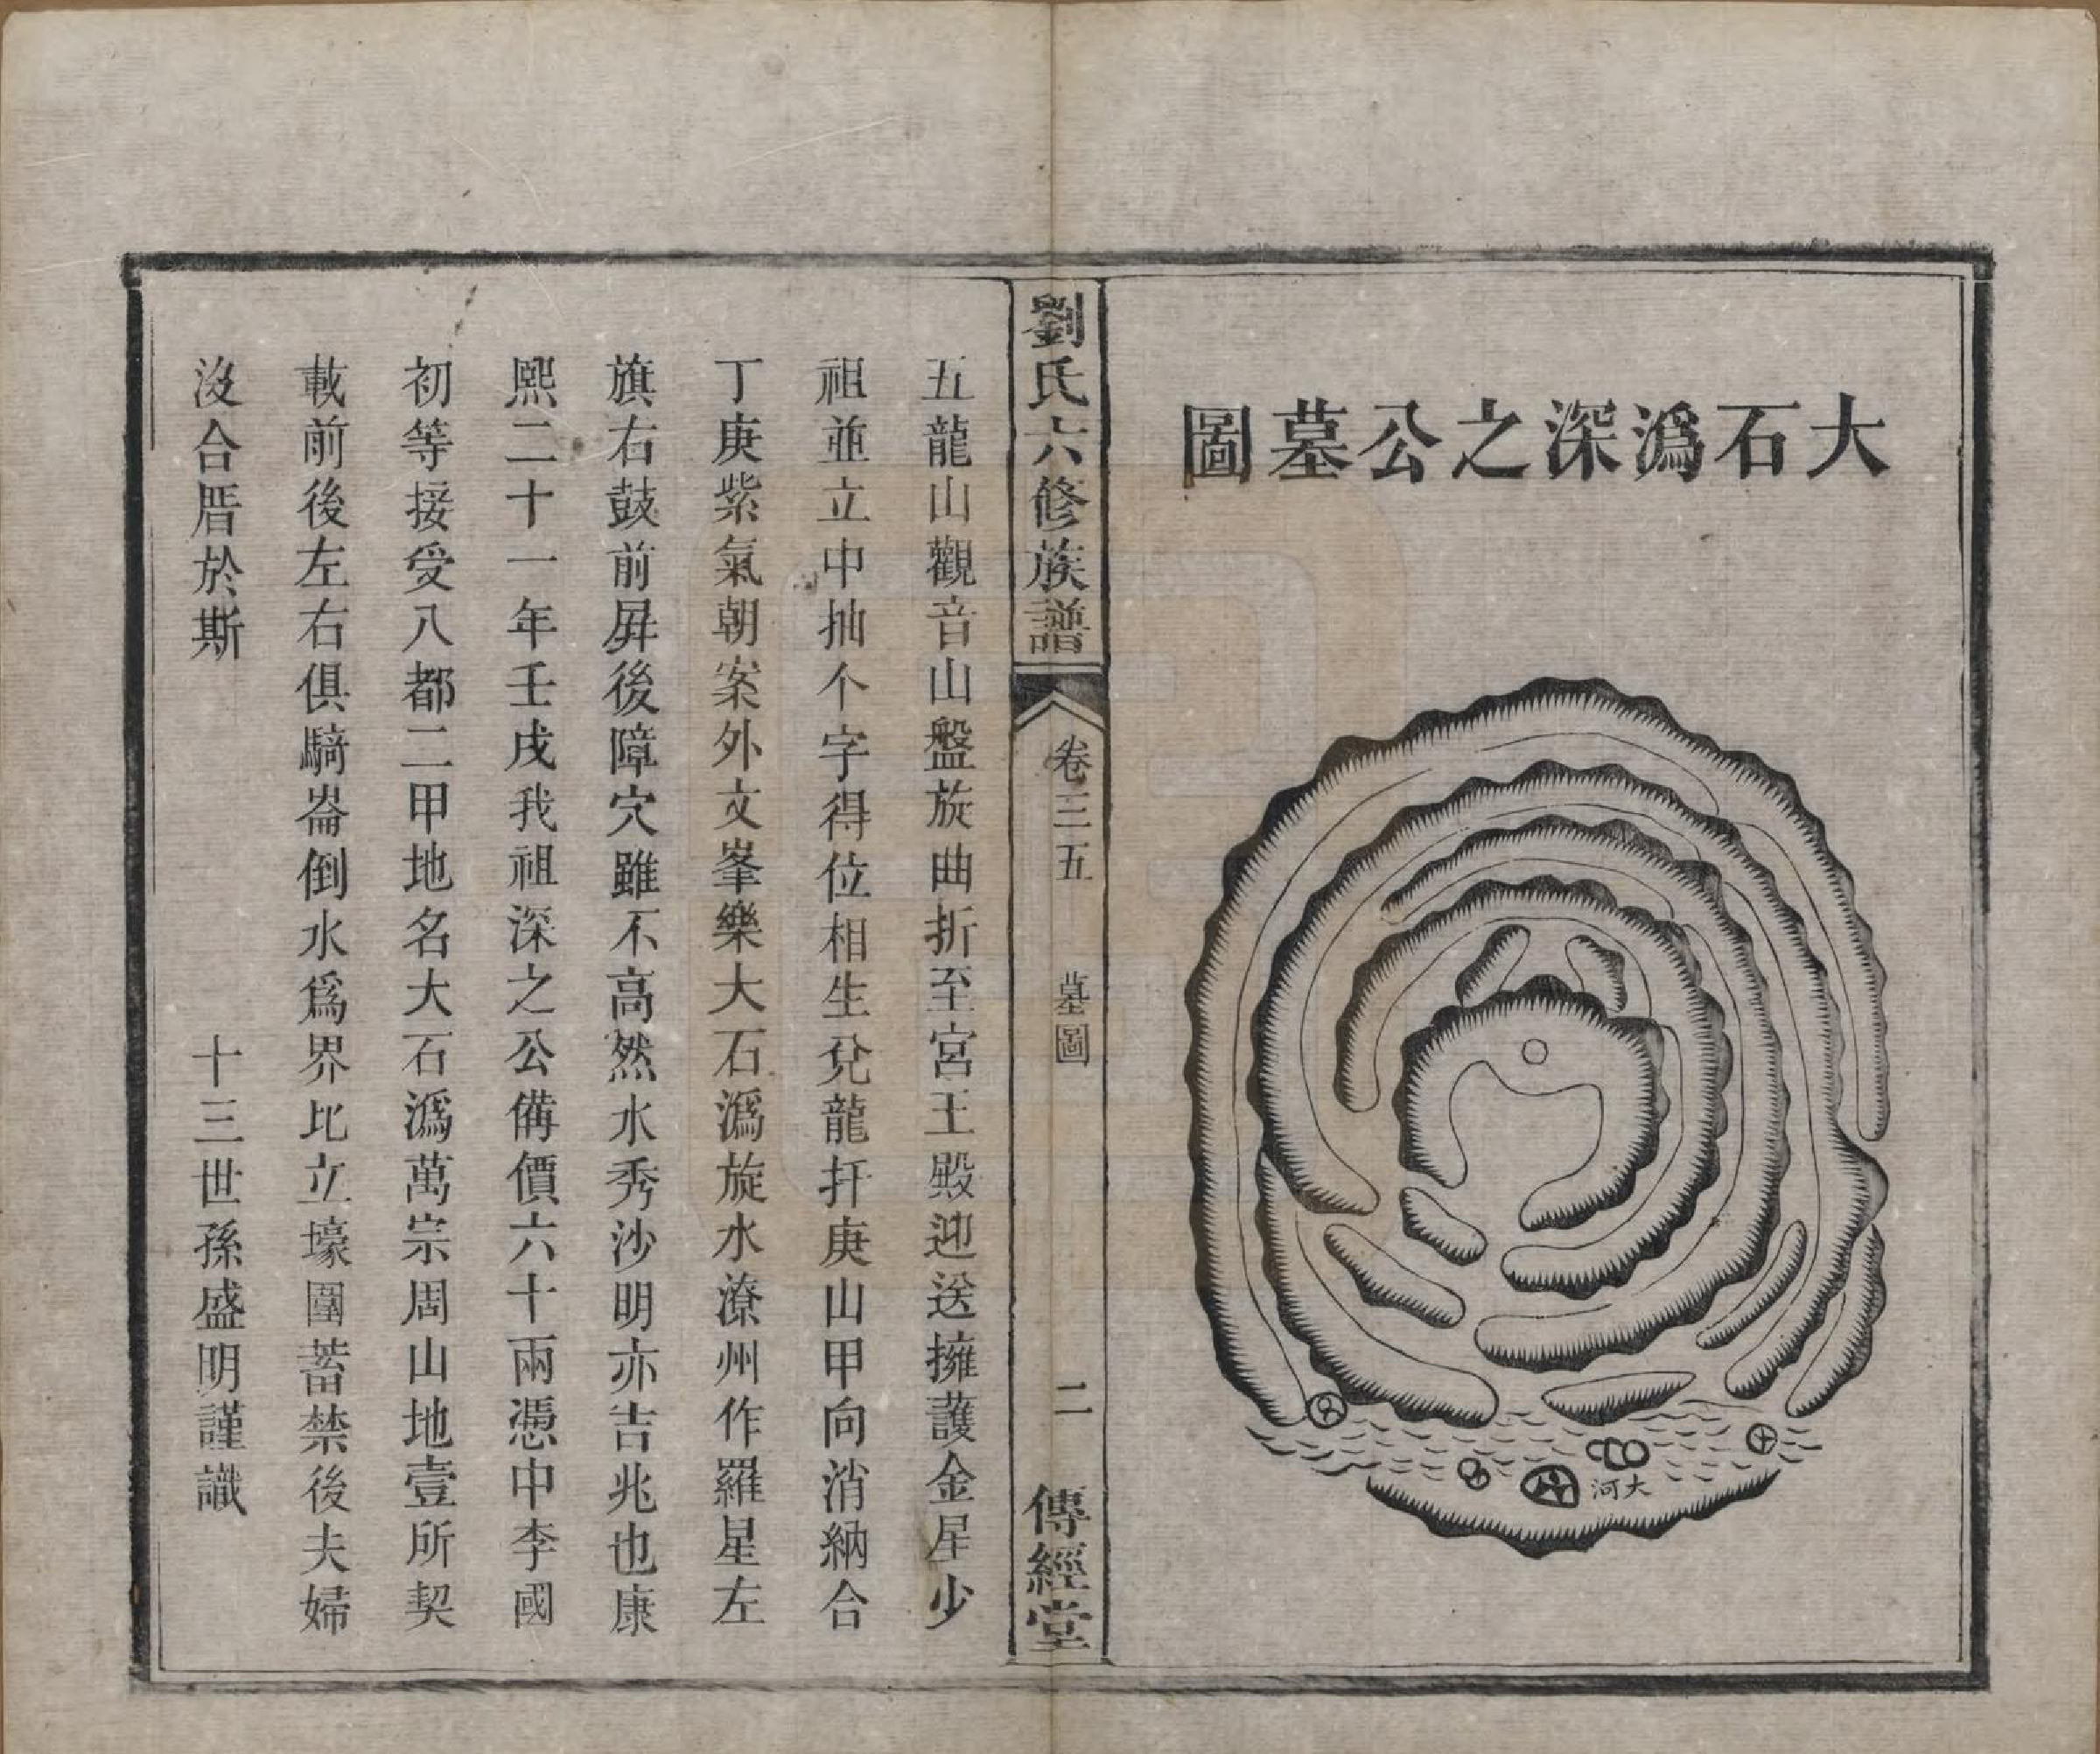 大石潙深之公墓圖
大河
劉氏六修族譜
卷三五
墓圖
二
傳經堂
五龍山觀音山盤旋曲折至宮王殿迎送擁護金星少
祖並立中抽个字得位相生兌龍扞庚山甲向消納合
丁庚紫氣朝案外文峯樂大石潙旋水潦州作羅星左
旗右鼓前屛後障穴雖不高然水秀沙明亦吉兆也康
熙二十一年壬戌我祖深之公備價六十兩憑中李國
初等接受八都二甲地名大石潙萬宗周山地壹所契
載前後左右俱騎崙倒水爲界比立壕圍蓄禁後夫婦
沒合厝於斯
十三世孫盛明謹識